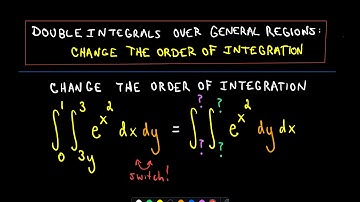 DOUBLE INTEGRALS OVER GENERAL REGIONS:
CHANGE THE ORDER OF INTEGRATION
CHANGE THE ORDER OF INTEGRATION
∫₀¹ ∫₃ᵧ³ e^(x²) dx dy = ∫_?^? ∫_?^? e^(x²) dy dx
switch!